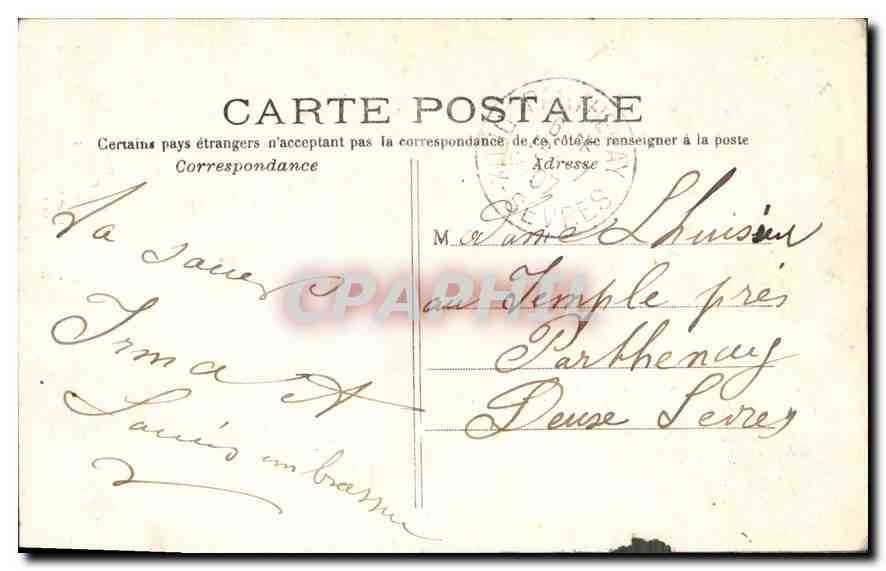 CARTE POSTALE
Certains pays étrangers n'acceptant pas la correspondance de ce côté se renseigner à la poste
Correspondance
Adresse
Ta soeur
Irma et
Louis
embrasse
Madame Lhuisier
au Temple près
Parthenay
Deux Sevres
PARTHENAY
07
SEVRES
CPAPHIL